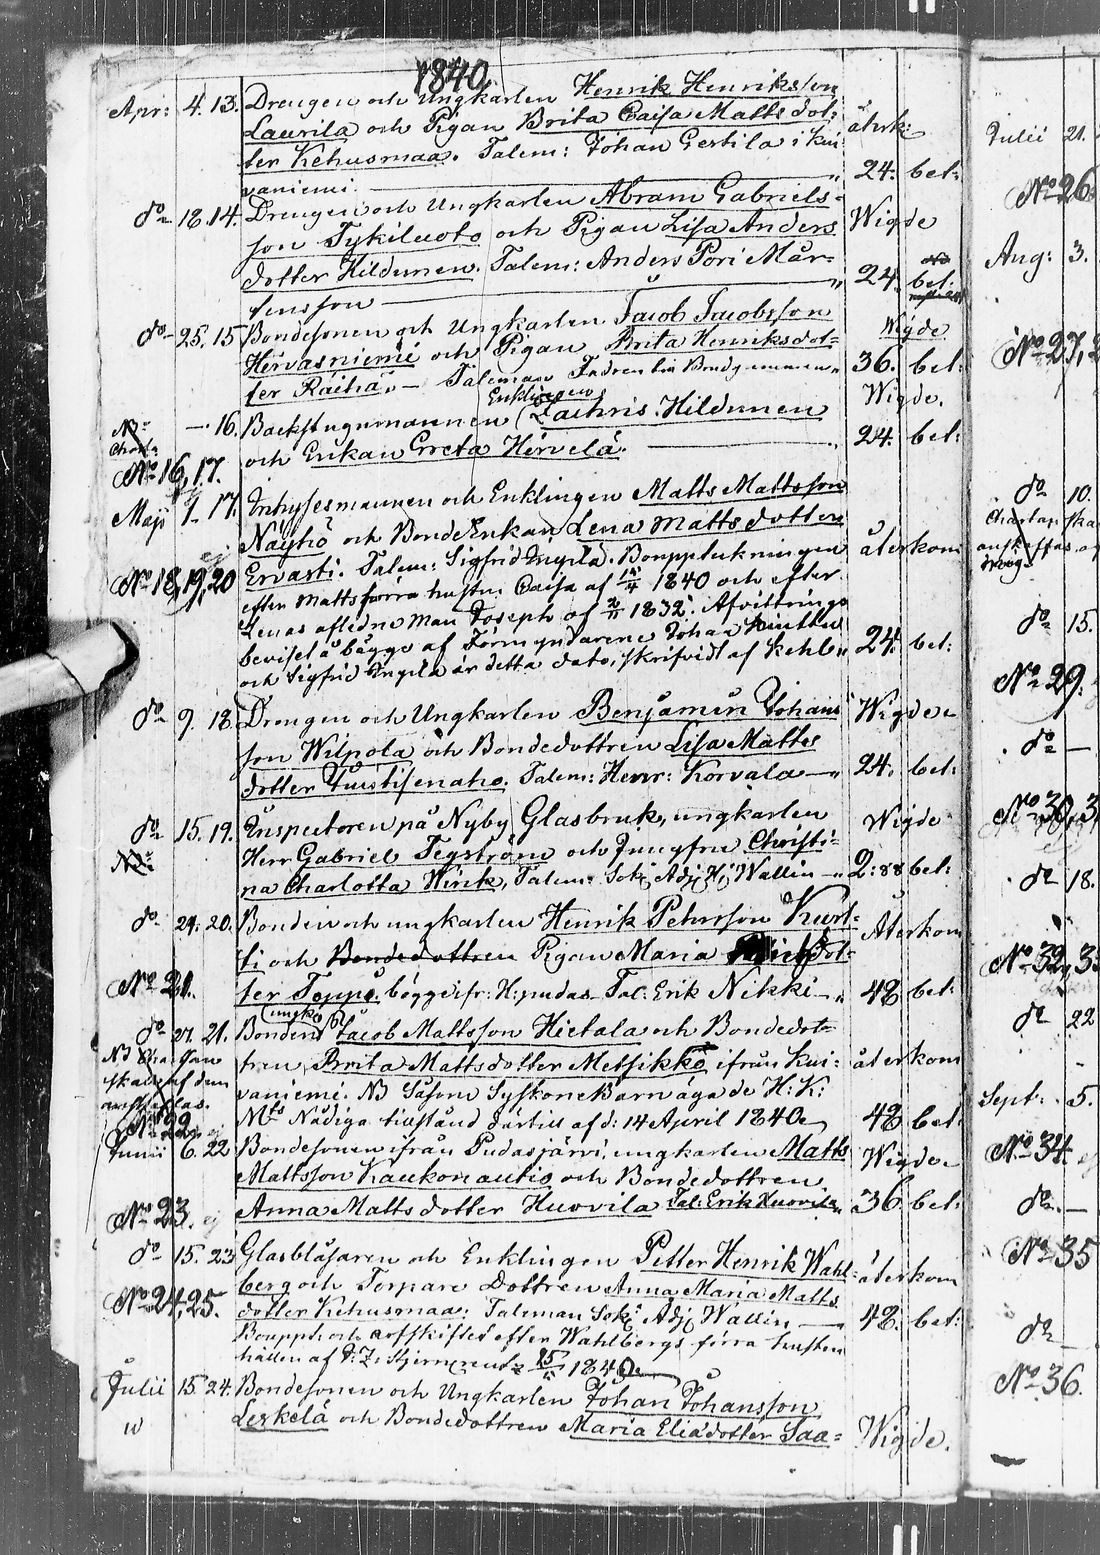 1840.
Apr: 4. 13. Drengen och Ungkarlen Henrik Henriksson
Laurila och Pigan Brita Caisa Matts dot- återk:
ter Kehusmaa. Talem: Johan Gertila i Kui
vaniemi. 24. bet:
do 18. 14. Drengen och Ungkarlen Abram Gabriels- Wigde
son Tykiluoto och Pigan Lisa Anders
dotter Hildunen. Talem: Anders Pori Mår- 24. bet:
tensson
do 25. 15 Bondesonen och Ungkarlen Jacob Jacobsson Wigde
Hervasniemi och Pigan Brita Henriksdot-
ter Raiha. Taleman 36. bet:
Enklingen
16. Backstugumannen Zachris Hildunen Wigde.
och Enkan Greta Hervelä. 24. bet:
No 16, 17.
Maji 7. 17. Inhysesmannen och Enklingen Matts Mattsson
Näyhö och BondeEnkan Lena Mattsdotter
ej
No 18, 19, 20 Ervasti. Talem: Sigfrid Ingila. Bouppteckningen återkom
efter Matts förra hustru Caisa af 1840 och efter
Lenas afledne man Joseph af 1832. Afvittrings
beviset å bägge af Förmyndarene Johan 24. bet:
och Sigfrid Ingila är detta dato, skrifvidt af Kehlu
do 9. 18. Drengen och Ungkarlen Benjamin Johans Wigde
son Wilpola och Bondedottren Lisa Matts
dotter Tuistisenaho. Talem: Henr: Korvala 24. bet:
do 15. 19. Inspectoren på Nyby Glasbruk, ungkarlen Wigde
Herr Gabriel Tegström och Jungfru Christi-
na Charlotta Wirik, Talem: Sok: Adj: Hj Wallin 2:88 bet:
do 24. 20. Bonden och ungkarlen Henrik Pehrsson Kurt-
ti och Bondedottren Pigan Maria dot- Återkom
No 21. ter Toppo. bägge ifr: H:pudas Tal: Erik Nikki 48 bet:
ungk
do 27. 21. Bonden Jacob Mattsson Hietala och Bondedot-
tren Brita Mattsdotter Metsikkö ifrån Kui- återkom
vaniemi. NB Såsom Syskone Barn äga de H: K:
Mts Nådiga tillstånd därtill af d: 14 April 1840 48. bet:
No 22. ej
Junii 6. 22 Bondesonen ifrån Pudasjärvi, ungkarlen Matts Wigde
Mattsson Kaukonautio och Bondedottren
No 23. ej Anna Mattsdotter Huovila Tal: Erik Huovila 36. bet:
do 15. 23 Glasblåsaren och Enklingen Petter Henrik Wahl- återkom
berg och Torpare Dottren Anna Maria Matts
No 24, 25. dotter Kehusmaa: Taleman Sok: Adj Wallin 48. bet:
Bouppt: och arfskiftet efter Wahlbergs förra hustru
hållen af 1840
Julii 15. 24. Bondesonen och Ungkarlen Johan Johansson
Leskelä och Bondedottren Maria Eliædotter Saa- Wigde.
Julii 21.
No 26.
Aug: 3.
No 27, 2
do 10.
do 15.
No 29.
do —
No 30, 3
do 18.
No 32, 3
do 22
Sept: 5.
No 34
do —
No 35
do
No 36.